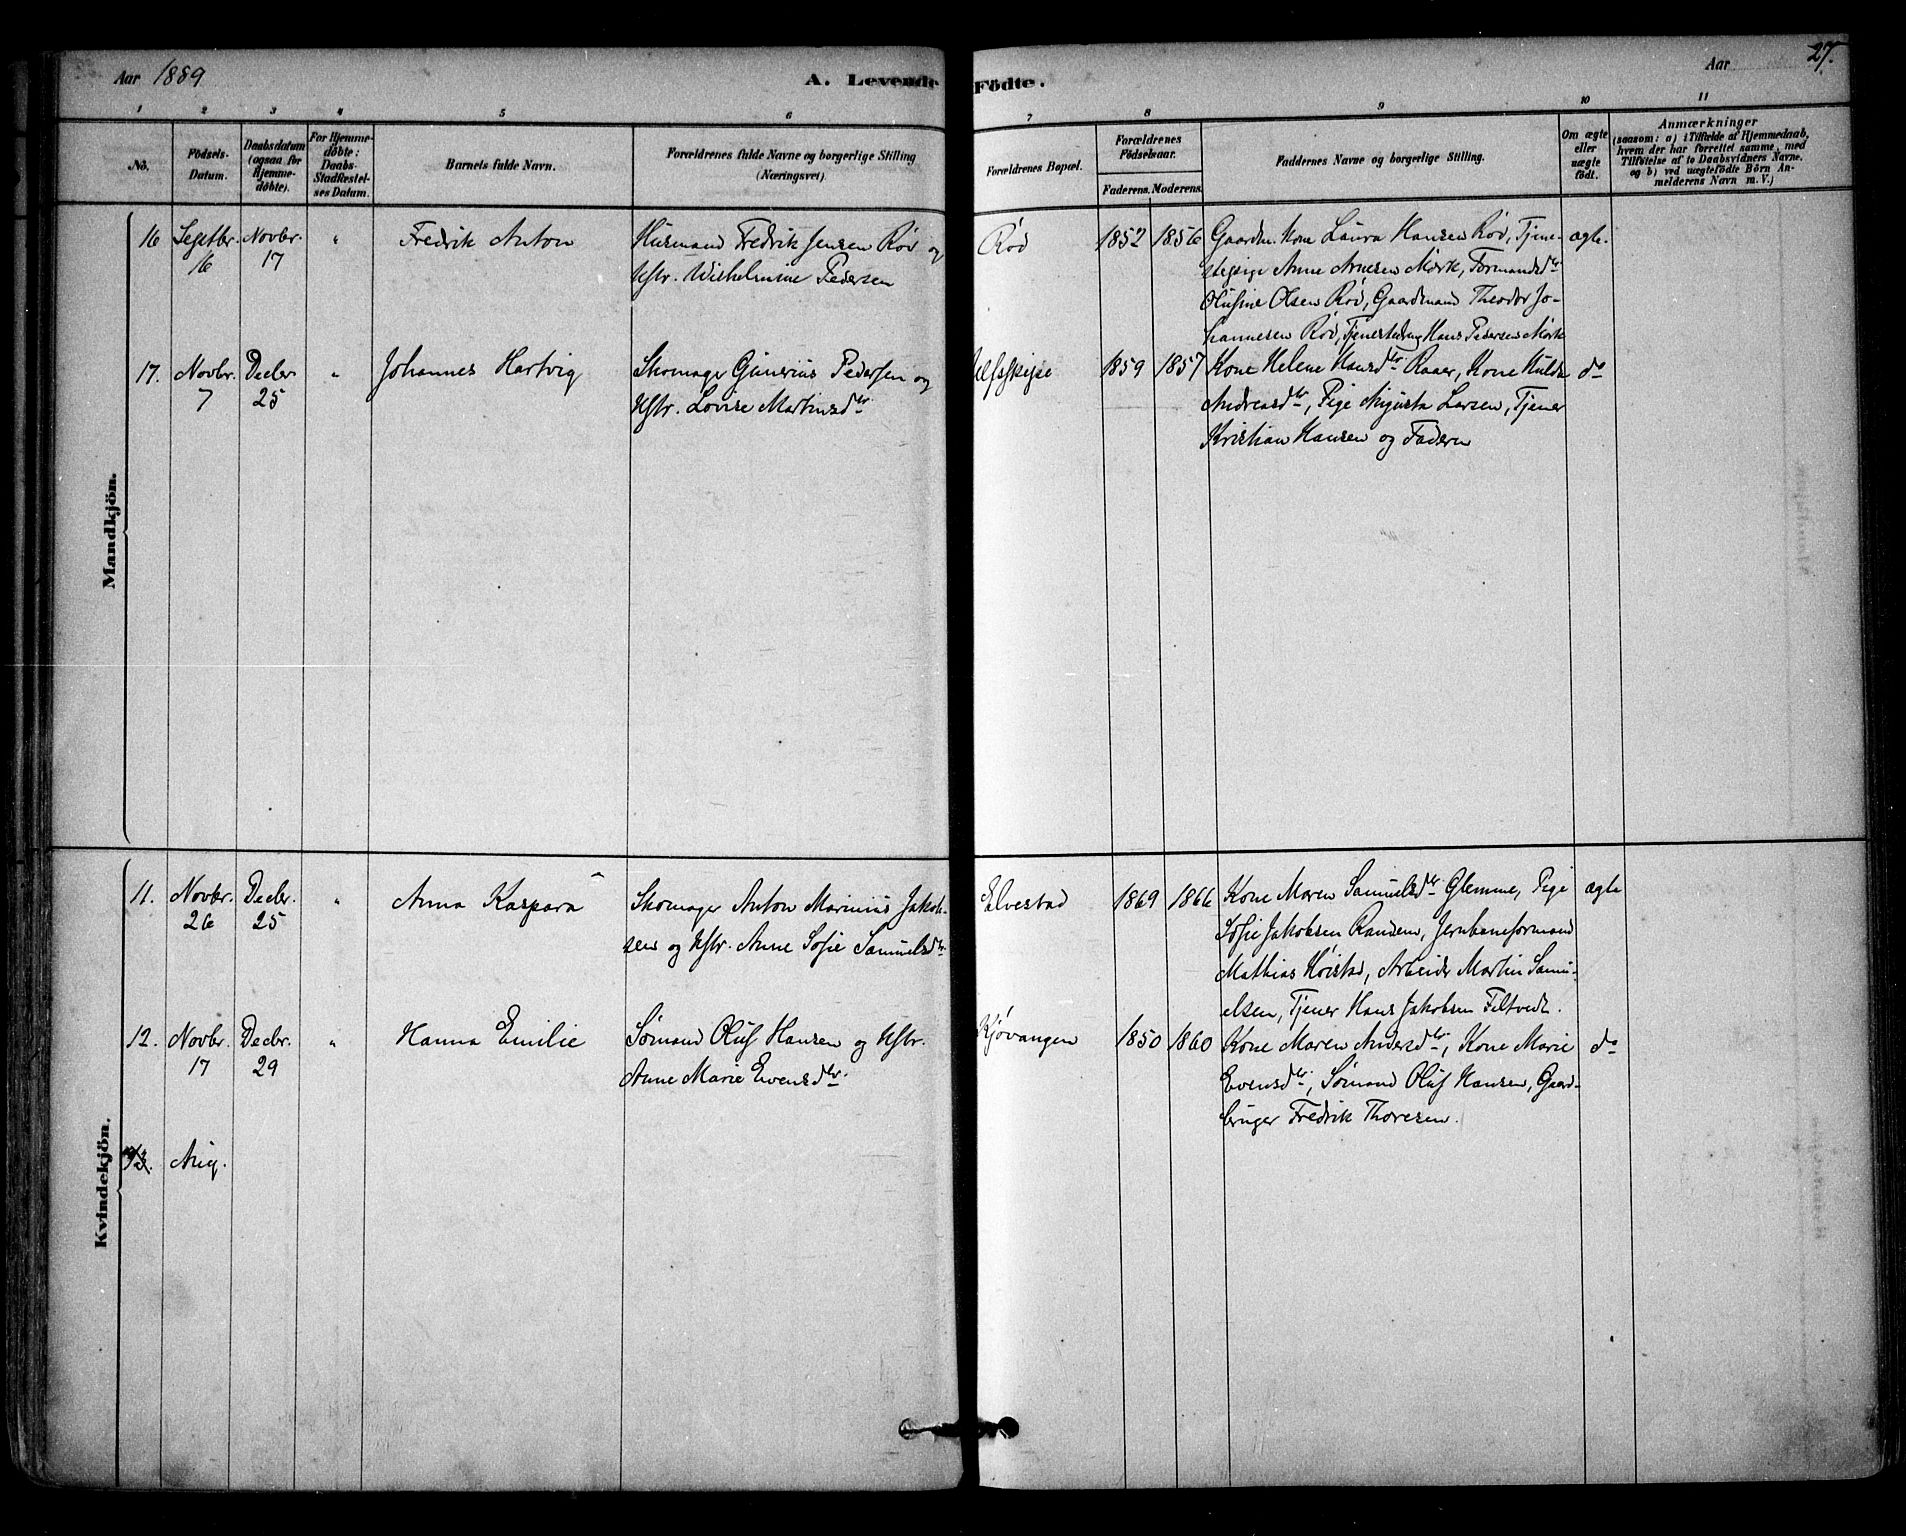 Aar 1889
A. Levende Födte.
Aar
27.
1 2 3 4 5 6 7 8 9 10 11
No.
Födsels-
Datum.
Daabsdatum
(ogsaa for
Hjemme-
döbte).
For Hjemme-
döbte:
Daabs-
Stadfæstel-
ses Datum.
Barnets fulde Navn.
Forældrenes fulde Navne og borgerlige Stilling
(Næringsvei).
Forældrenes Bopæl.
Forældrenes
Födselsaar.
Faderens. Moderens.
Faddernes Navne og borgerlige Stilling.
Om ægte
eller
uægte
födt.
Anmærkninger
(saasom: a) i Tilfælde af Hjemmedaab,
hvem der har forrettet samme, med
Tilföielse af to Daabsvidners Navne,
og b) ved uægtefödte Börn An-
melderens Navn m. V.)
Mandkjön.
16 Septbr. 16
Novbr. 17
"
Fredrik Anton
Husmand Fredrik Jensen Rød og
Hstr. Wilhelmine Pedersen
Rød
1852 1856
Gaardm. Kone Laura Hansen Rød, Tjene-
stepige Anne Arnesen Mørk, Formandsdtr
Olufine Olsen Rød, Gaardmand Theodor Jo-
hannesen Rød, Tjenestedreng Hans Pedersen Mørk
ægte.
17. Novbr. 7
Decbr. 25
"
Johannes Hartvig
Skomager Gunerius Pedersen og
Hstr. Lovise Martinsdtr
1859 1857
Kone Helene Hansdtr Raaer, Kone Hulda
Andreasdtr, Pige Augusta Larsen, Tjener
Kristian Hansen og Faderen
do
Kvindekjön.
11. Novbr. 26
Decbr. 25
"
Anna Kaspara
Skomager Anton Marinius Jakob-
sen og Hstr. Anne Sofie Samuelsdtr
Elvestad
1869 1866
Kone Maren Samuelsdtr Glemme, Pige
Sofie Jakobsen Randem, Jernbaneformand
Mathias Høistad, Arbeider Martin Samu-
elsen, Tjener Hans Jakobsen Filtvedt.
ægte
12. Novbr. 17
Decbr. 29
"
Hanna Emilie
Sømand Oluf Hansen og Hstr.
Anne Marie Evensdtr
Kjøvangen
1850 1860
Kone Maren Andersdtr, Kone Marie
Evensdtr, Sømand Oluf Hansen, Gaard-
bruger Fredrik Thoresen.
do
13. Aug.